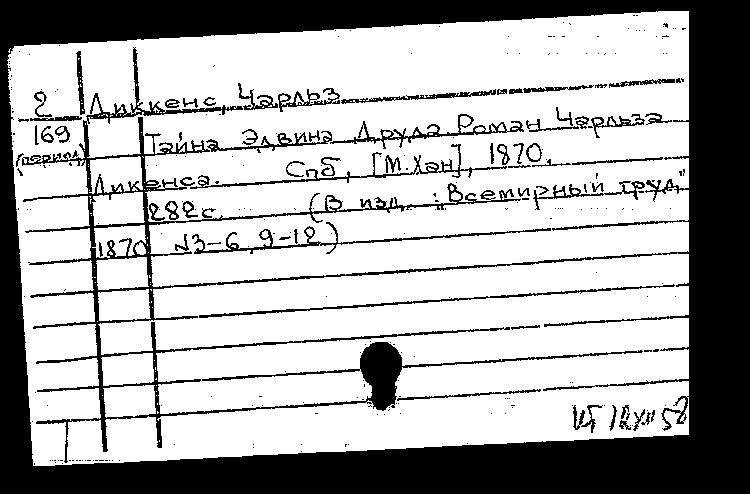 2 Диккенс, Чарльз
169 Тайна Эдвина Друда Роман Чарльза
(период) Дикенса. Спб, [М. Хан], 1870.
282 с. (В изд. „Всемирный труд,"
1870 №3-6, 9-12)
58